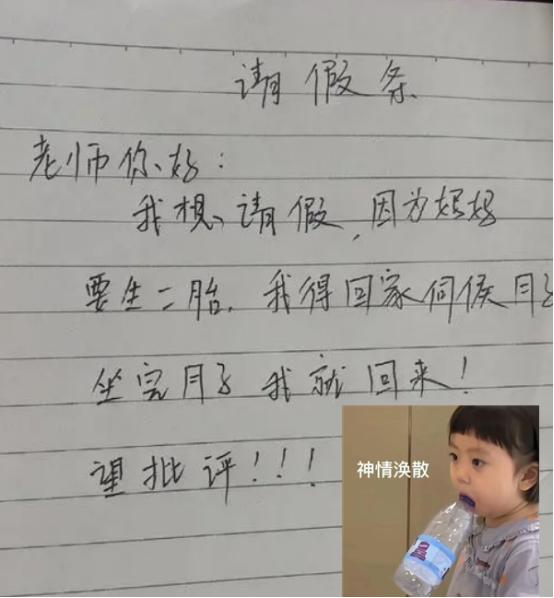 请假条
老师你好:
我想请假,因为妈妈
要生二胎,我得回家伺候月子
坐完月子我就回来!
望批评!!!
神情涣散